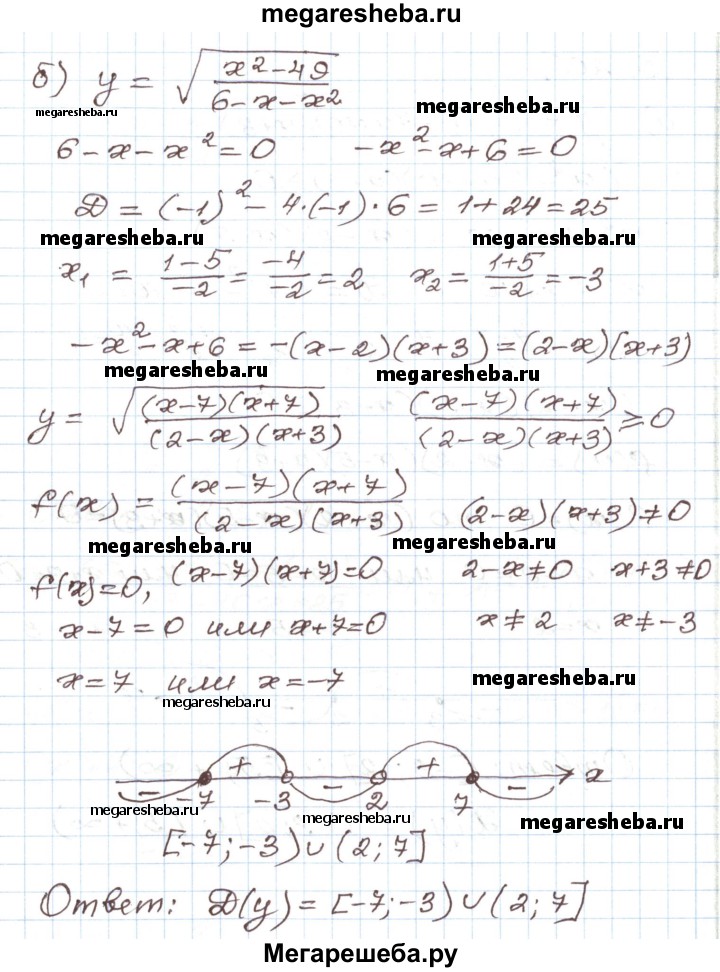 megaresheba.ru
б) y = √((x² - 49)/(6 - x - x²))
megaresheba.ru
megaresheba.ru
6 - x - x² = 0   -x² - x + 6 = 0
D = (-1)² - 4·(-1)·6 = 1 + 24 = 25
megaresheba.ru megaresheba.ru
x₁ = (1-5)/(-2) = (-4)/(-2) = 2   x₂ = (1+5)/(-2) = -3
-x² - x + 6 = -(x-2)(x+3) = (2-x)(x+3)
megaresheba.ru megaresheba.ru
y = √((x-7)(x+7)/((2-x)(x+3)))   (x-7)(x+7)/((2-x)(x+3)) ⩾ 0
f(x) = (x-7)(x+7)/((2-x)(x+3))   (2-x)(x+3) ≠ 0
megaresheba.ru megaresheba.ru
f(x)=0, (x-7)(x+7)=0   2-x≠0   x+3≠0
x-7=0 или x+7=0   x≠2   x≠-3
x=7. или x=-7
megaresheba.ru
megaresheba.ru
+ + x
- -7 -3 - 2 7 -
megaresheba.ru megaresheba.ru megaresheba.ru
[-7;-3) ∪ (2;7]
Ответ: D(y) = [-7;-3) ∪ (2;7]
Мегарешеба.ру